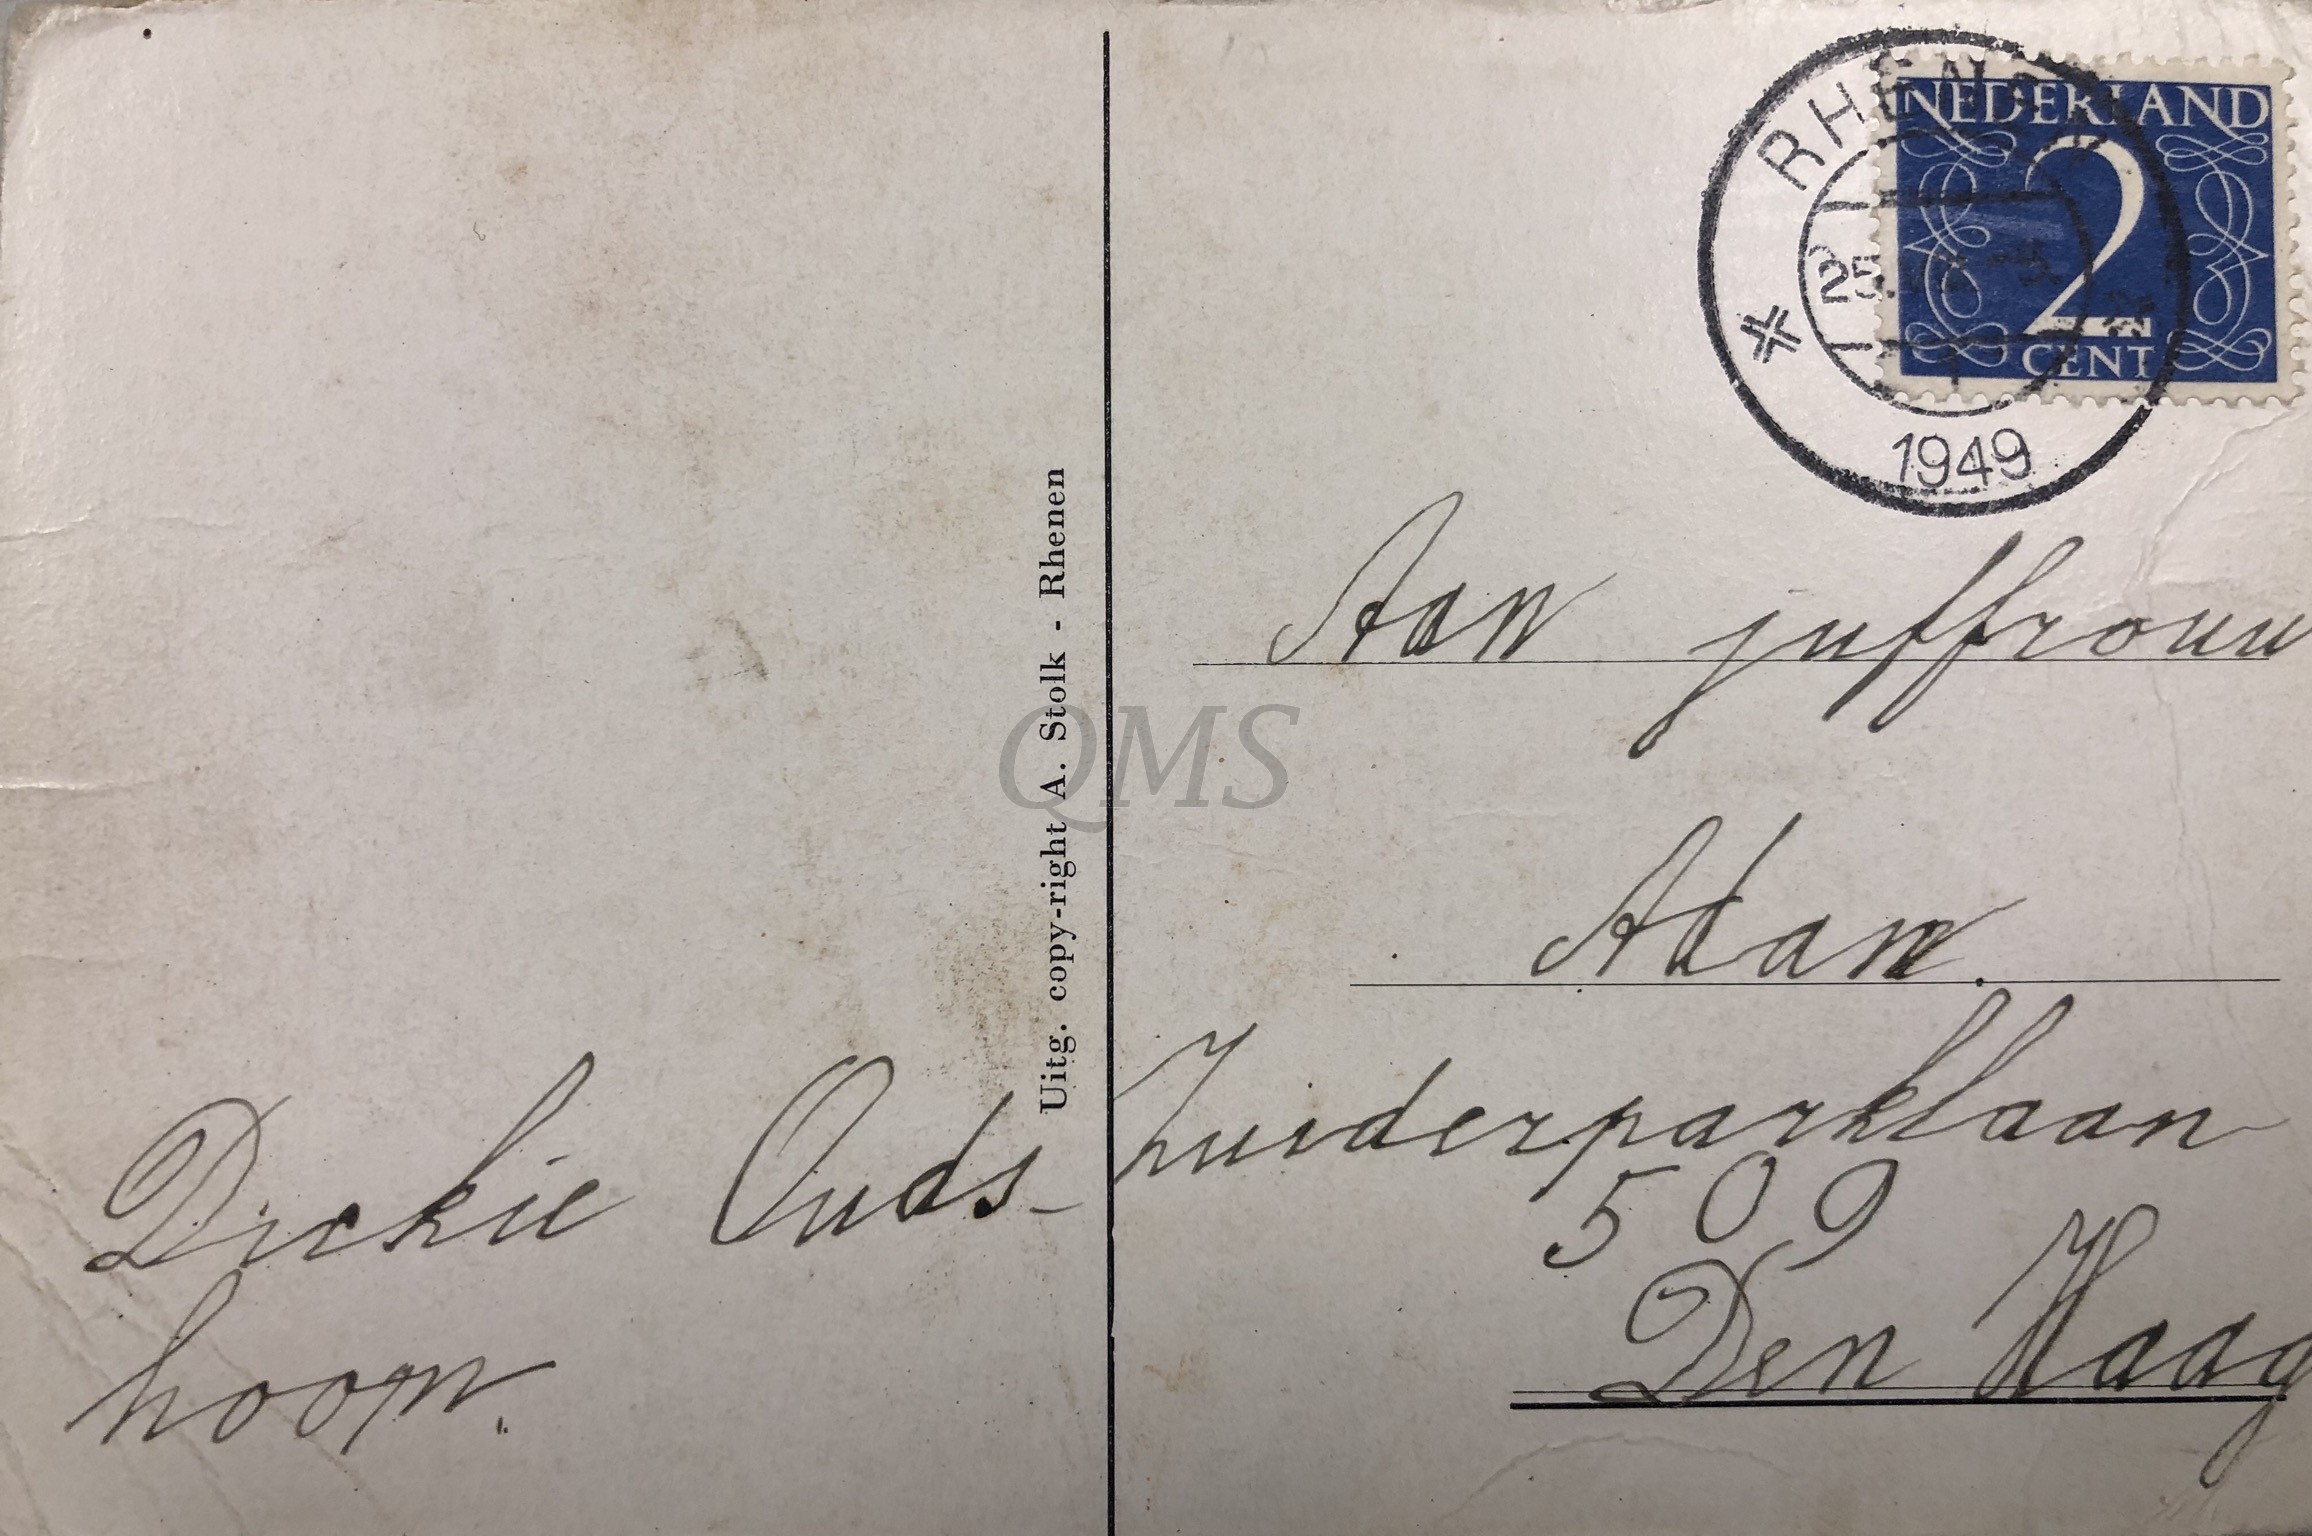 RHENEN
NEDERLAND
2
CENT
25.
1949
Uitg. copy-right A. Stolk - Rhenen
QMS
Aan juffrouw
Adam.
Zuiderparklaan
509
Den Haag
Dickie Ouds-
hoorn.